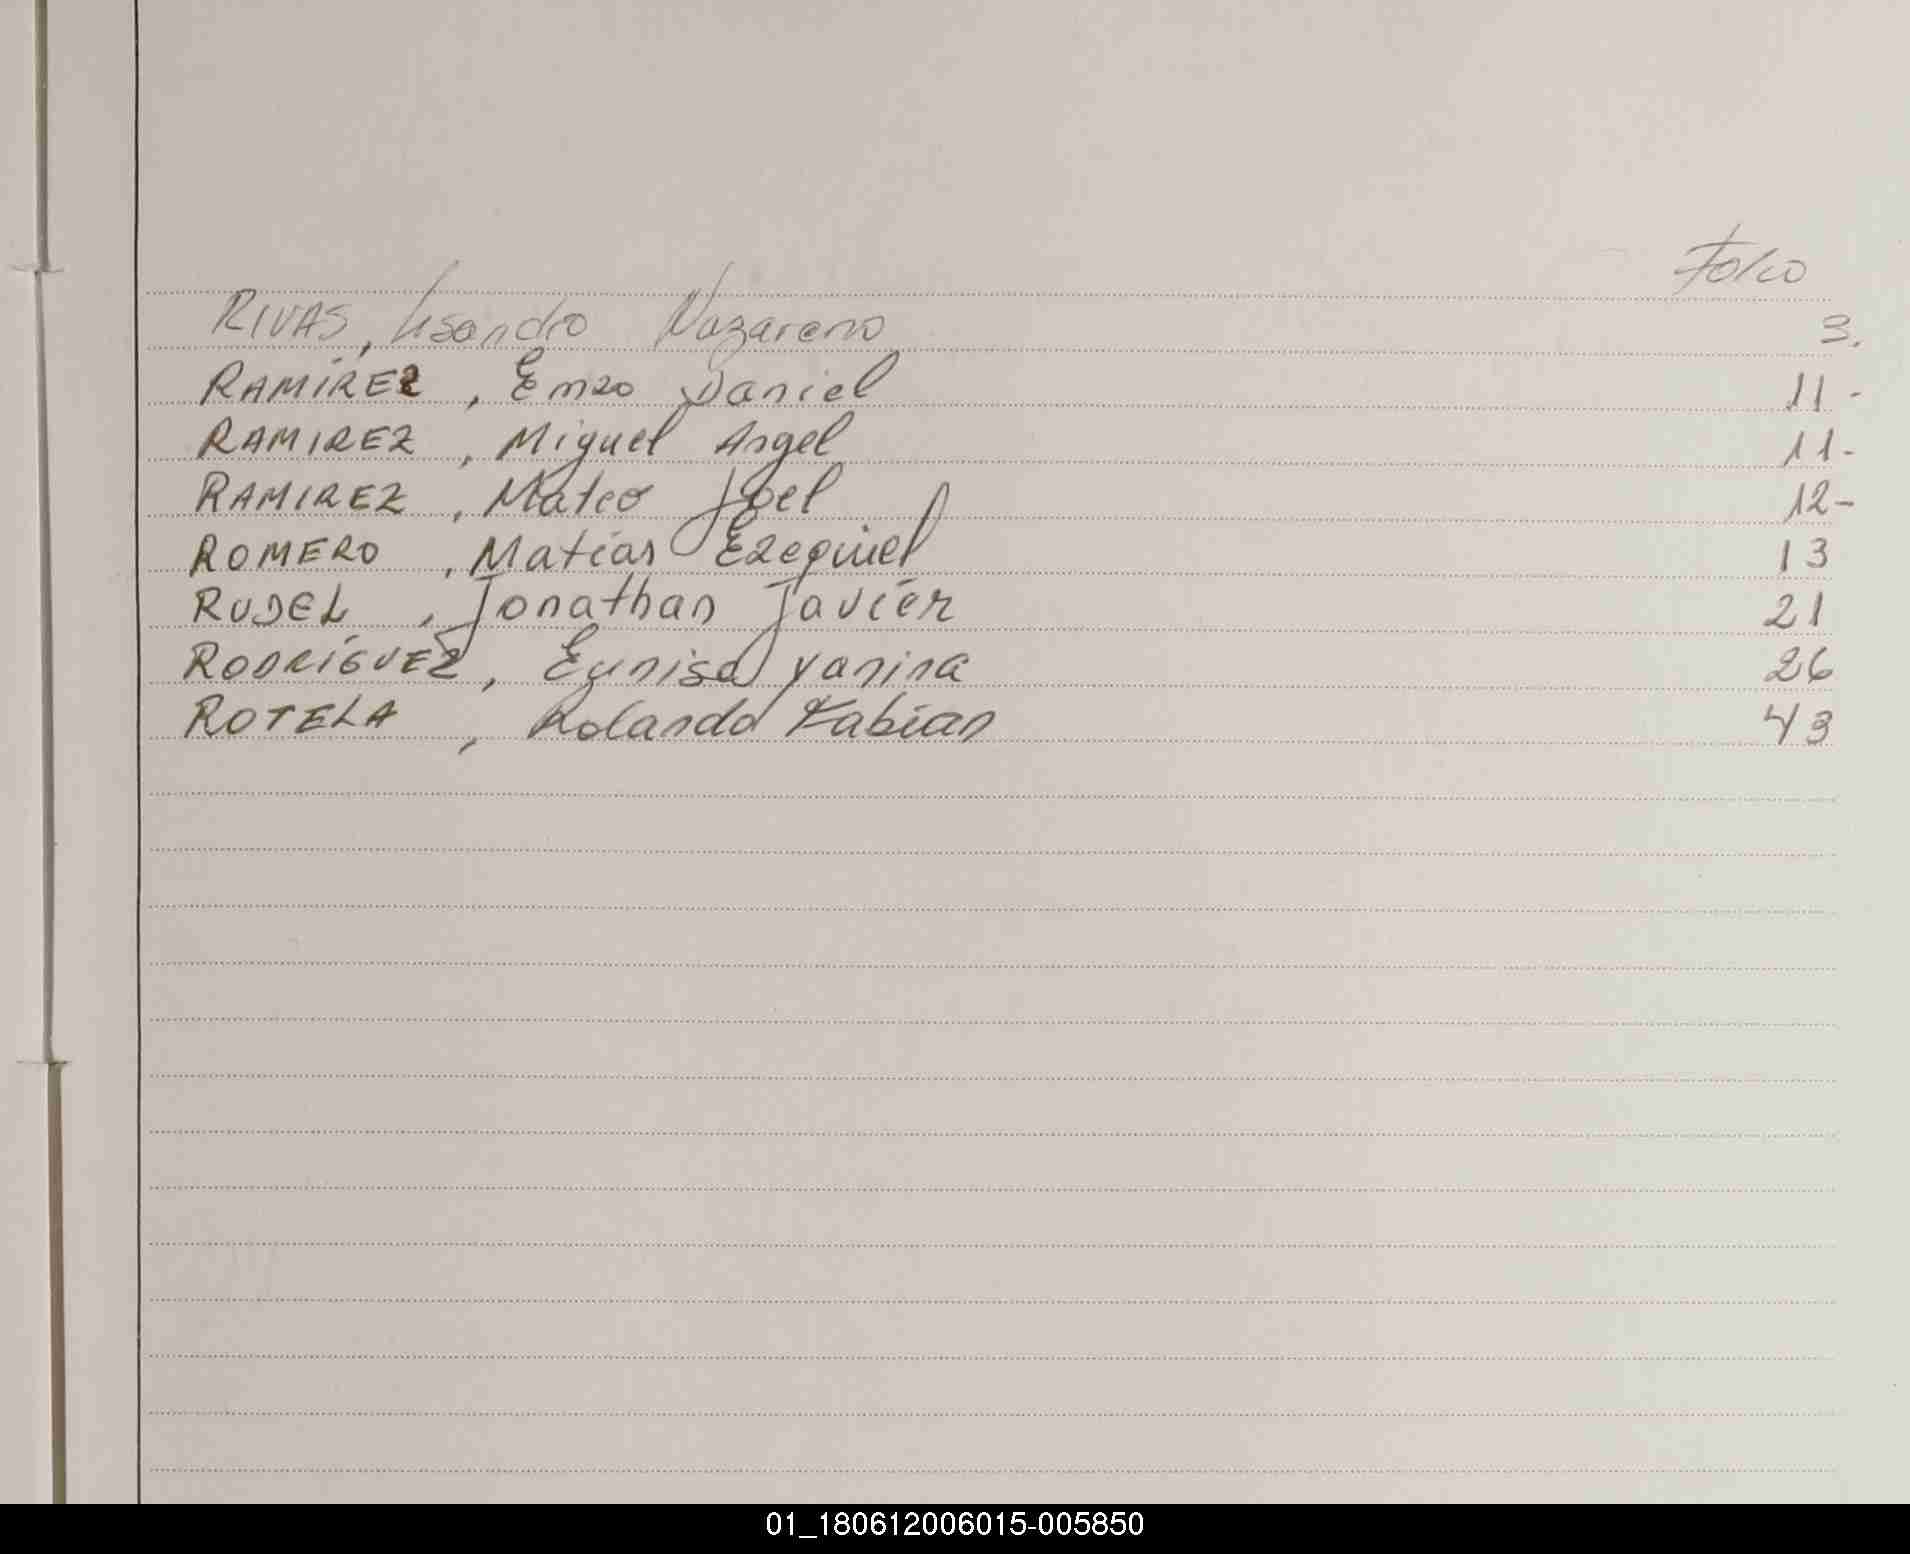 Folio
RIVAS, Lisandro Nazareno 3.
RAMÍREZ, Enzo Daniel 11-
RAMIREZ, Miguel Angel 11-
RAMIREZ, Mateo Joel 12-
ROMERO, Matías Ezequiel 13
RUDEL, Jonathan Javiér 21
RODRÍGUEZ, Eunisa Yanina 26
ROTELA, Rolando Fabian 43
01_180612006015-005850